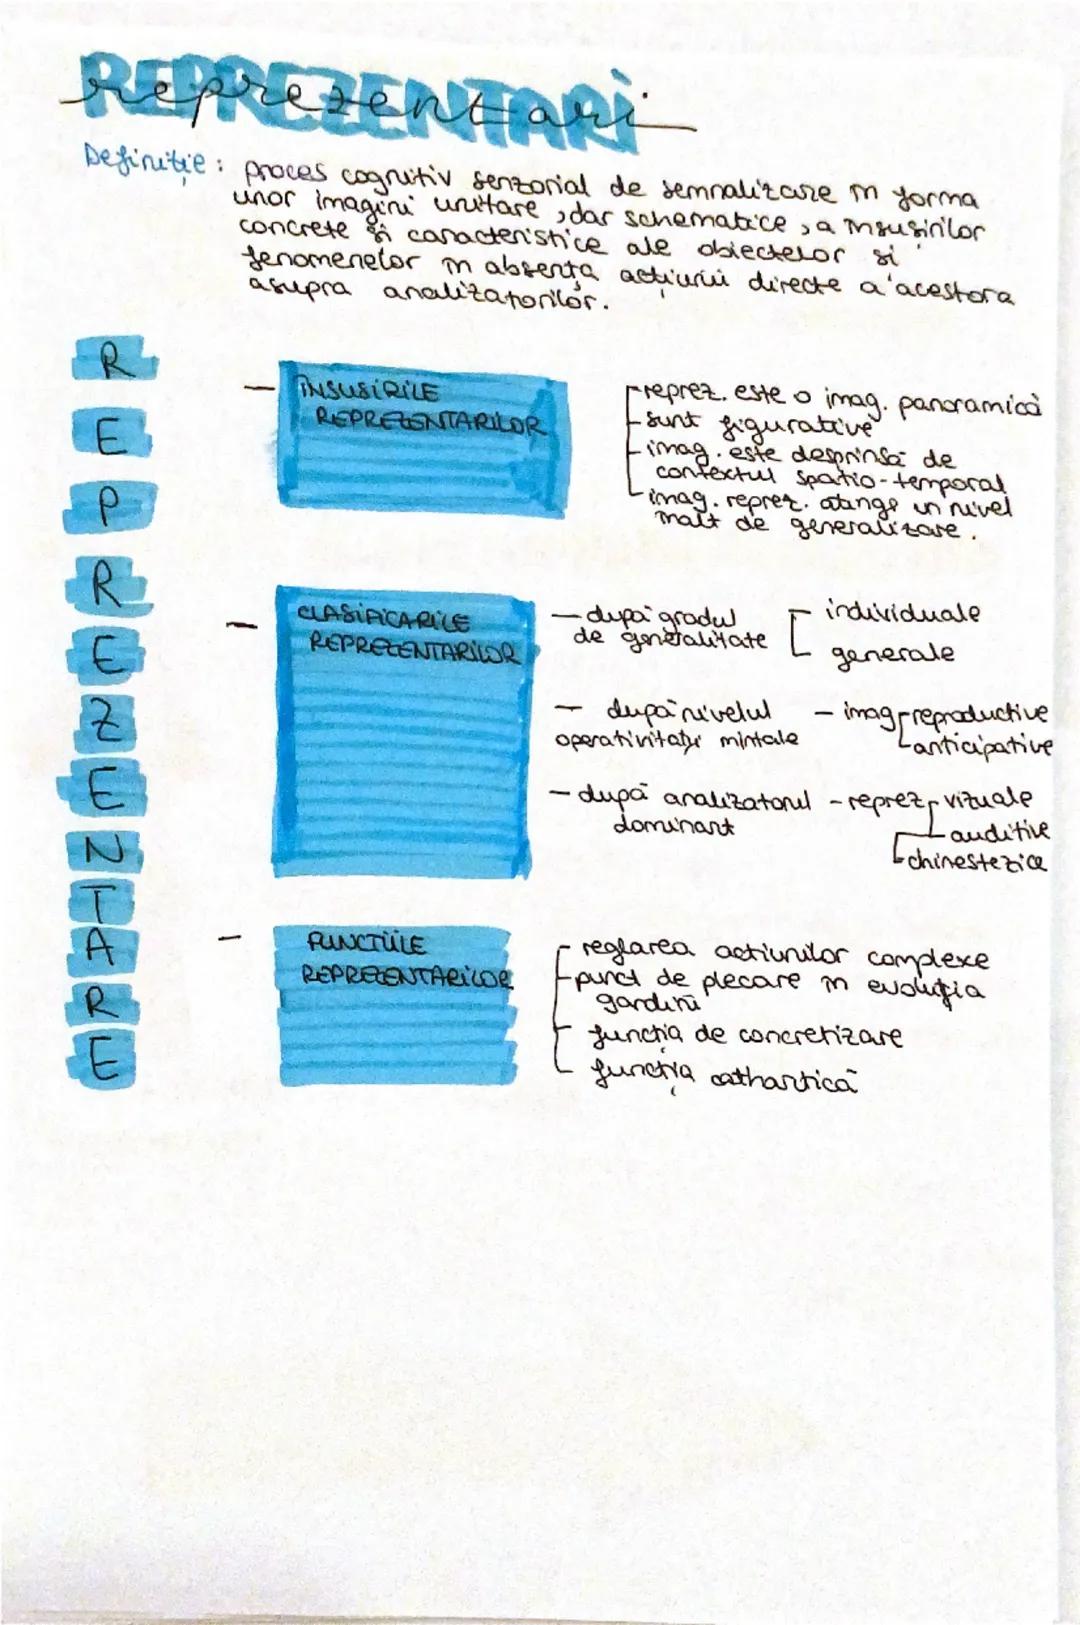 REPREZENTARI
reprezentari
Definiție: proces cognitiv senzorial de semnalizare în forma
unor imagini unitare, dar schematice, a însușirilor
concrete și caracteristice ale obiectelor si
fenomenelor în absența acțiunii directe a acestora
asupra analizatorilor.
R
E
P
R
E
Z
E
N
T
A
R
E
- ÎNSUSIRILE
REPREZENTARILOR
- reprez. este o imag. panoramică
- sunt figurative
- imag. este desprinsă de
contextul spatio-temporal
- imag. reprez. atinge un nivel
malt de generalizare.
- CLASIFICARILE
REPREZENTARILOR
- după gradul
de generalitate
individuale
generale
- după nivelul
operativității mintale
- imag reproductive
anticipative
- după analizatorul
dominant
- reprez vizuale
auditive
chinestezice
- FUNCTIILE
REPREZENTARILOR
reglarea actiunilor complexe
- punct de plecare în evoluția
gardinii
funcția de concretizare
funcția cathartică